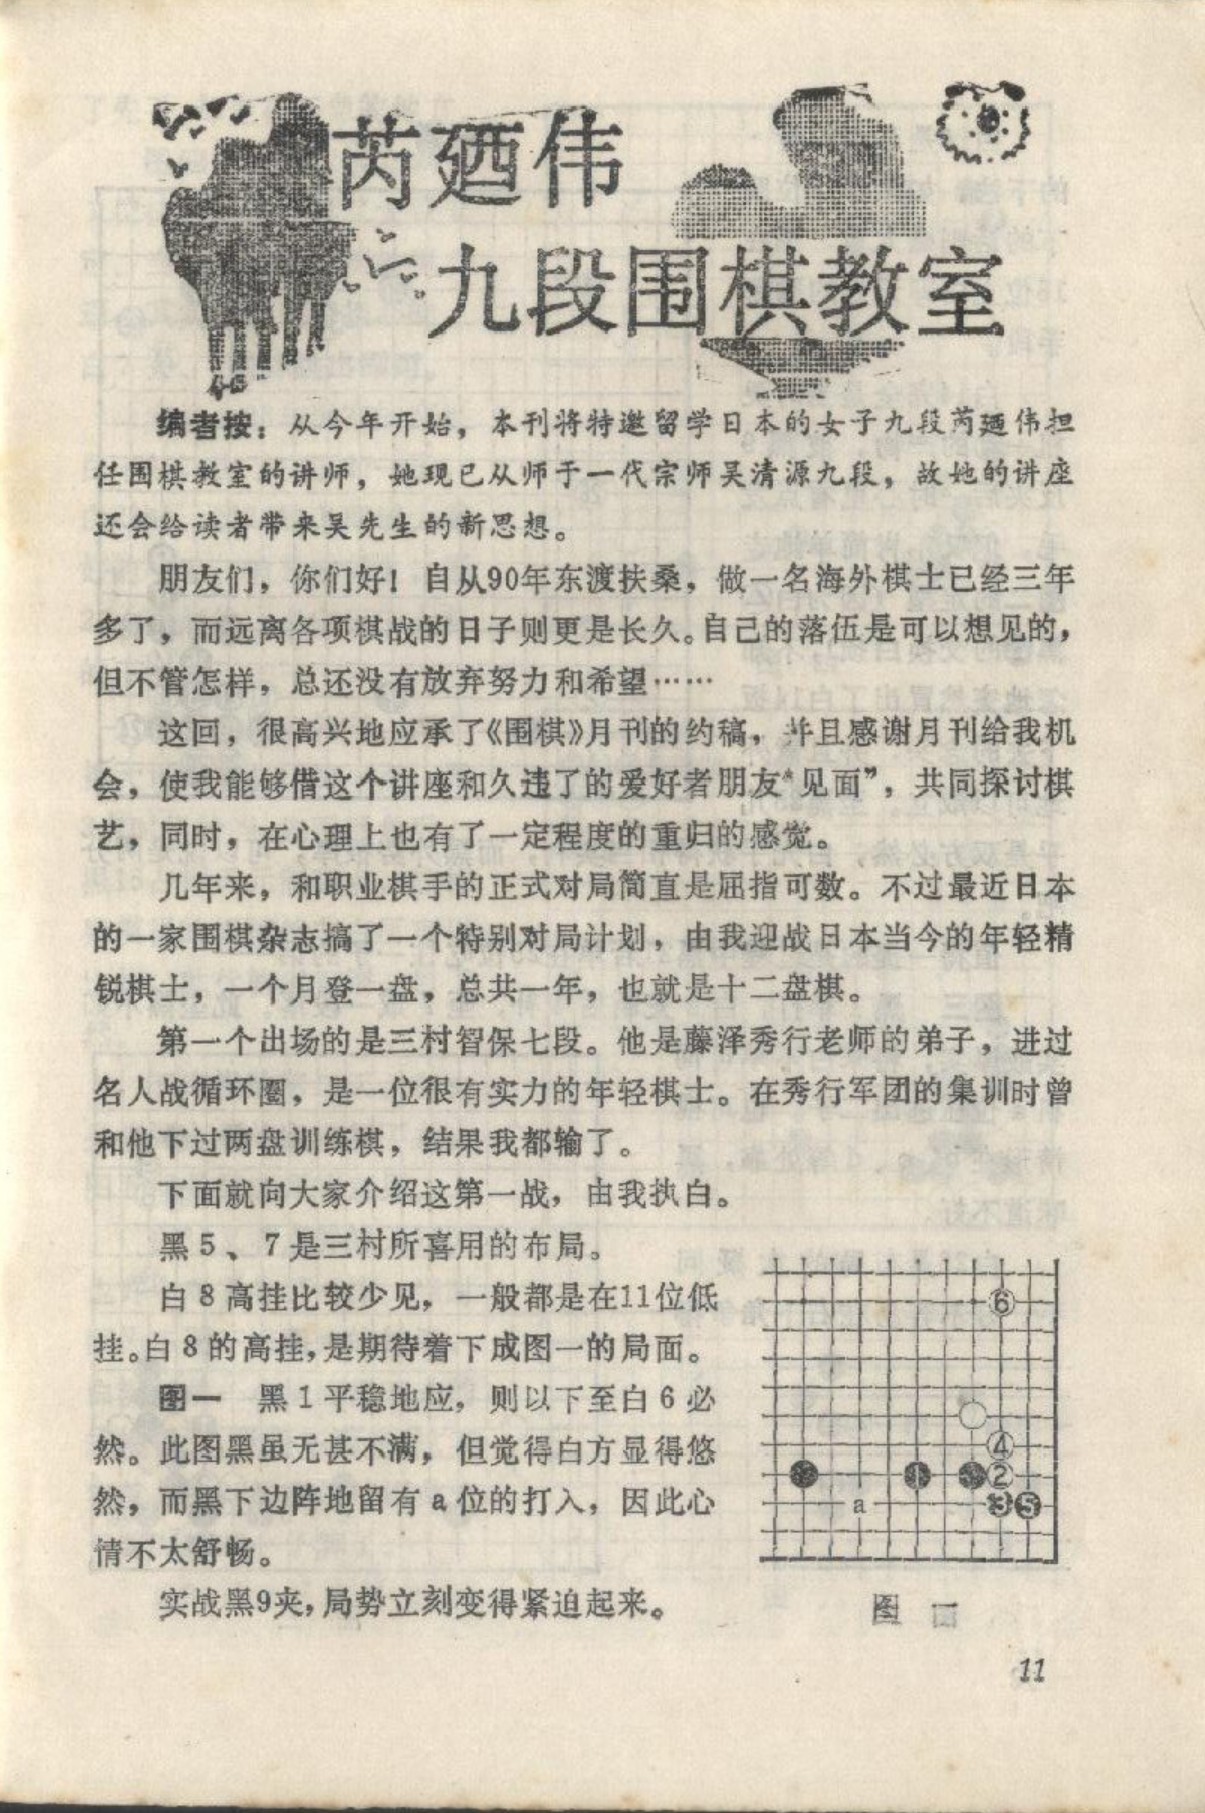 芮廼伟
九段围棋教室
编者按：从今年开始，本刊将特邀留学日本的女子九段芮廼伟担
任围棋教室的讲师，她现已从师于一代宗师吴清源九段，故她的讲座
还会给读者带来吴先生的新思想。
朋友们，你们好！自从90年东渡扶桑，做一名海外棋士已经三年
多了，而远离各项棋战的日子则更是长久。自己的落伍是可以想见的，
但不管怎样，总还没有放弃努力和希望……
这回，很高兴地应承了《围棋》月刊的约稿，并且感谢月刊给我机
会，使我能够借这个讲座和久违了的爱好者朋友“见面”，共同探讨棋
艺，同时，在心理上也有了一定程度的重归的感觉。
几年来，和职业棋手的正式对局简直是屈指可数。不过最近日本
的一家围棋杂志搞了一个特别对局计划，由我迎战日本当今的年轻精
锐棋士，一个月登一盘，总共一年，也就是十二盘棋。
第一个出场的是三村智保七段。他是藤泽秀行老师的弟子，进过
名人战循环圈，是一位很有实力的年轻棋士。在秀行军团的集训时曾
和他下过两盘训练棋，结果我都输了。
下面就向大家介绍这第一战，由我执白。
黑5、7是三村所喜用的布局。
白8高挂比较少见，一般都是在11位低
挂。白8的高挂，是期待着下成图一的局面。
图一 黑1平稳地应，则以下至白6必
然。此图黑虽无甚不满，但觉得白方显得悠
然，而黑下边阵地留有a位的打入，因此心
情不太舒畅。
实战黑9夹，局势立刻变得紧迫起来。
6
4
1
2
a
3 5
图一
11